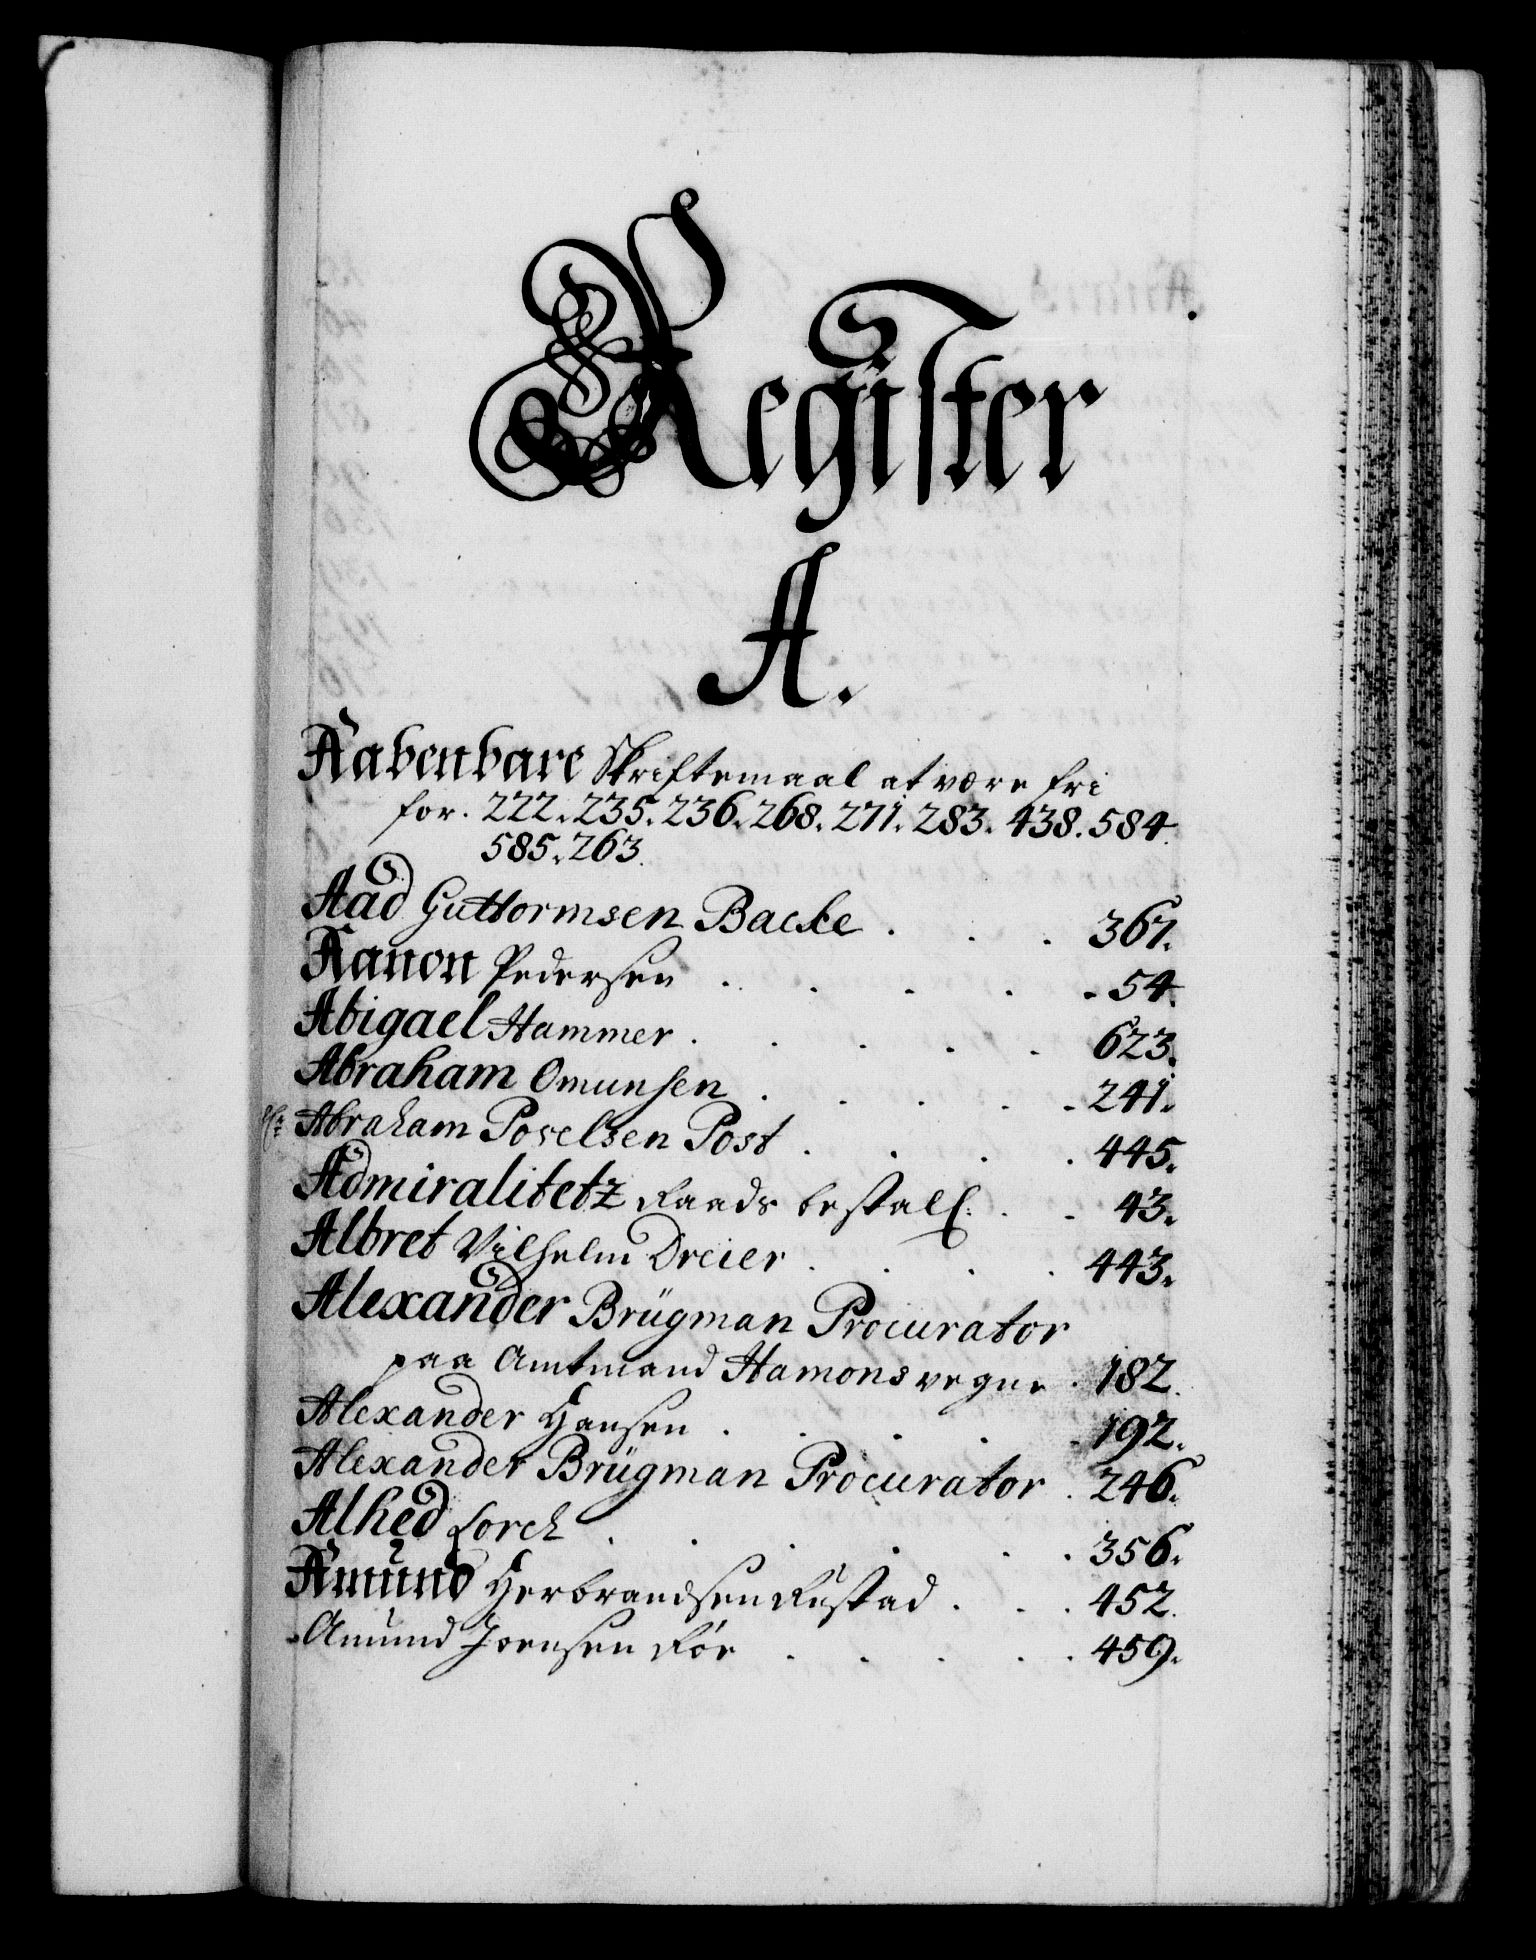 Register
A.
Aabenbare Skriftemaal at være fri
for. 222. 235. 236. 268. 271. 283. 438. 584.
585. 263.
Aad Guttormsen Backe . . . 367.
Aanon Pedersen . . . . . 54.
Abigael Hammer . . . . . 623.
Abraham Omunsen . . . . . 241.
Abraham Povelsen Post . . . . 445.
Admiralitetz Raads bestall: . . 43.
Albret Vilhelm Dreier . . . . 443.
Alexander Brügman Procurator
paa Amtmand Hamons vegne . 182.
Alexander Hansen . . . . . 192.
Alexander Brügman Procurator . 246.
Alhed Lorch . . . . . . 356.
Amund Herbrandsen Rustad . . . 452.
Amund Joensen Rør . . . . . 459.